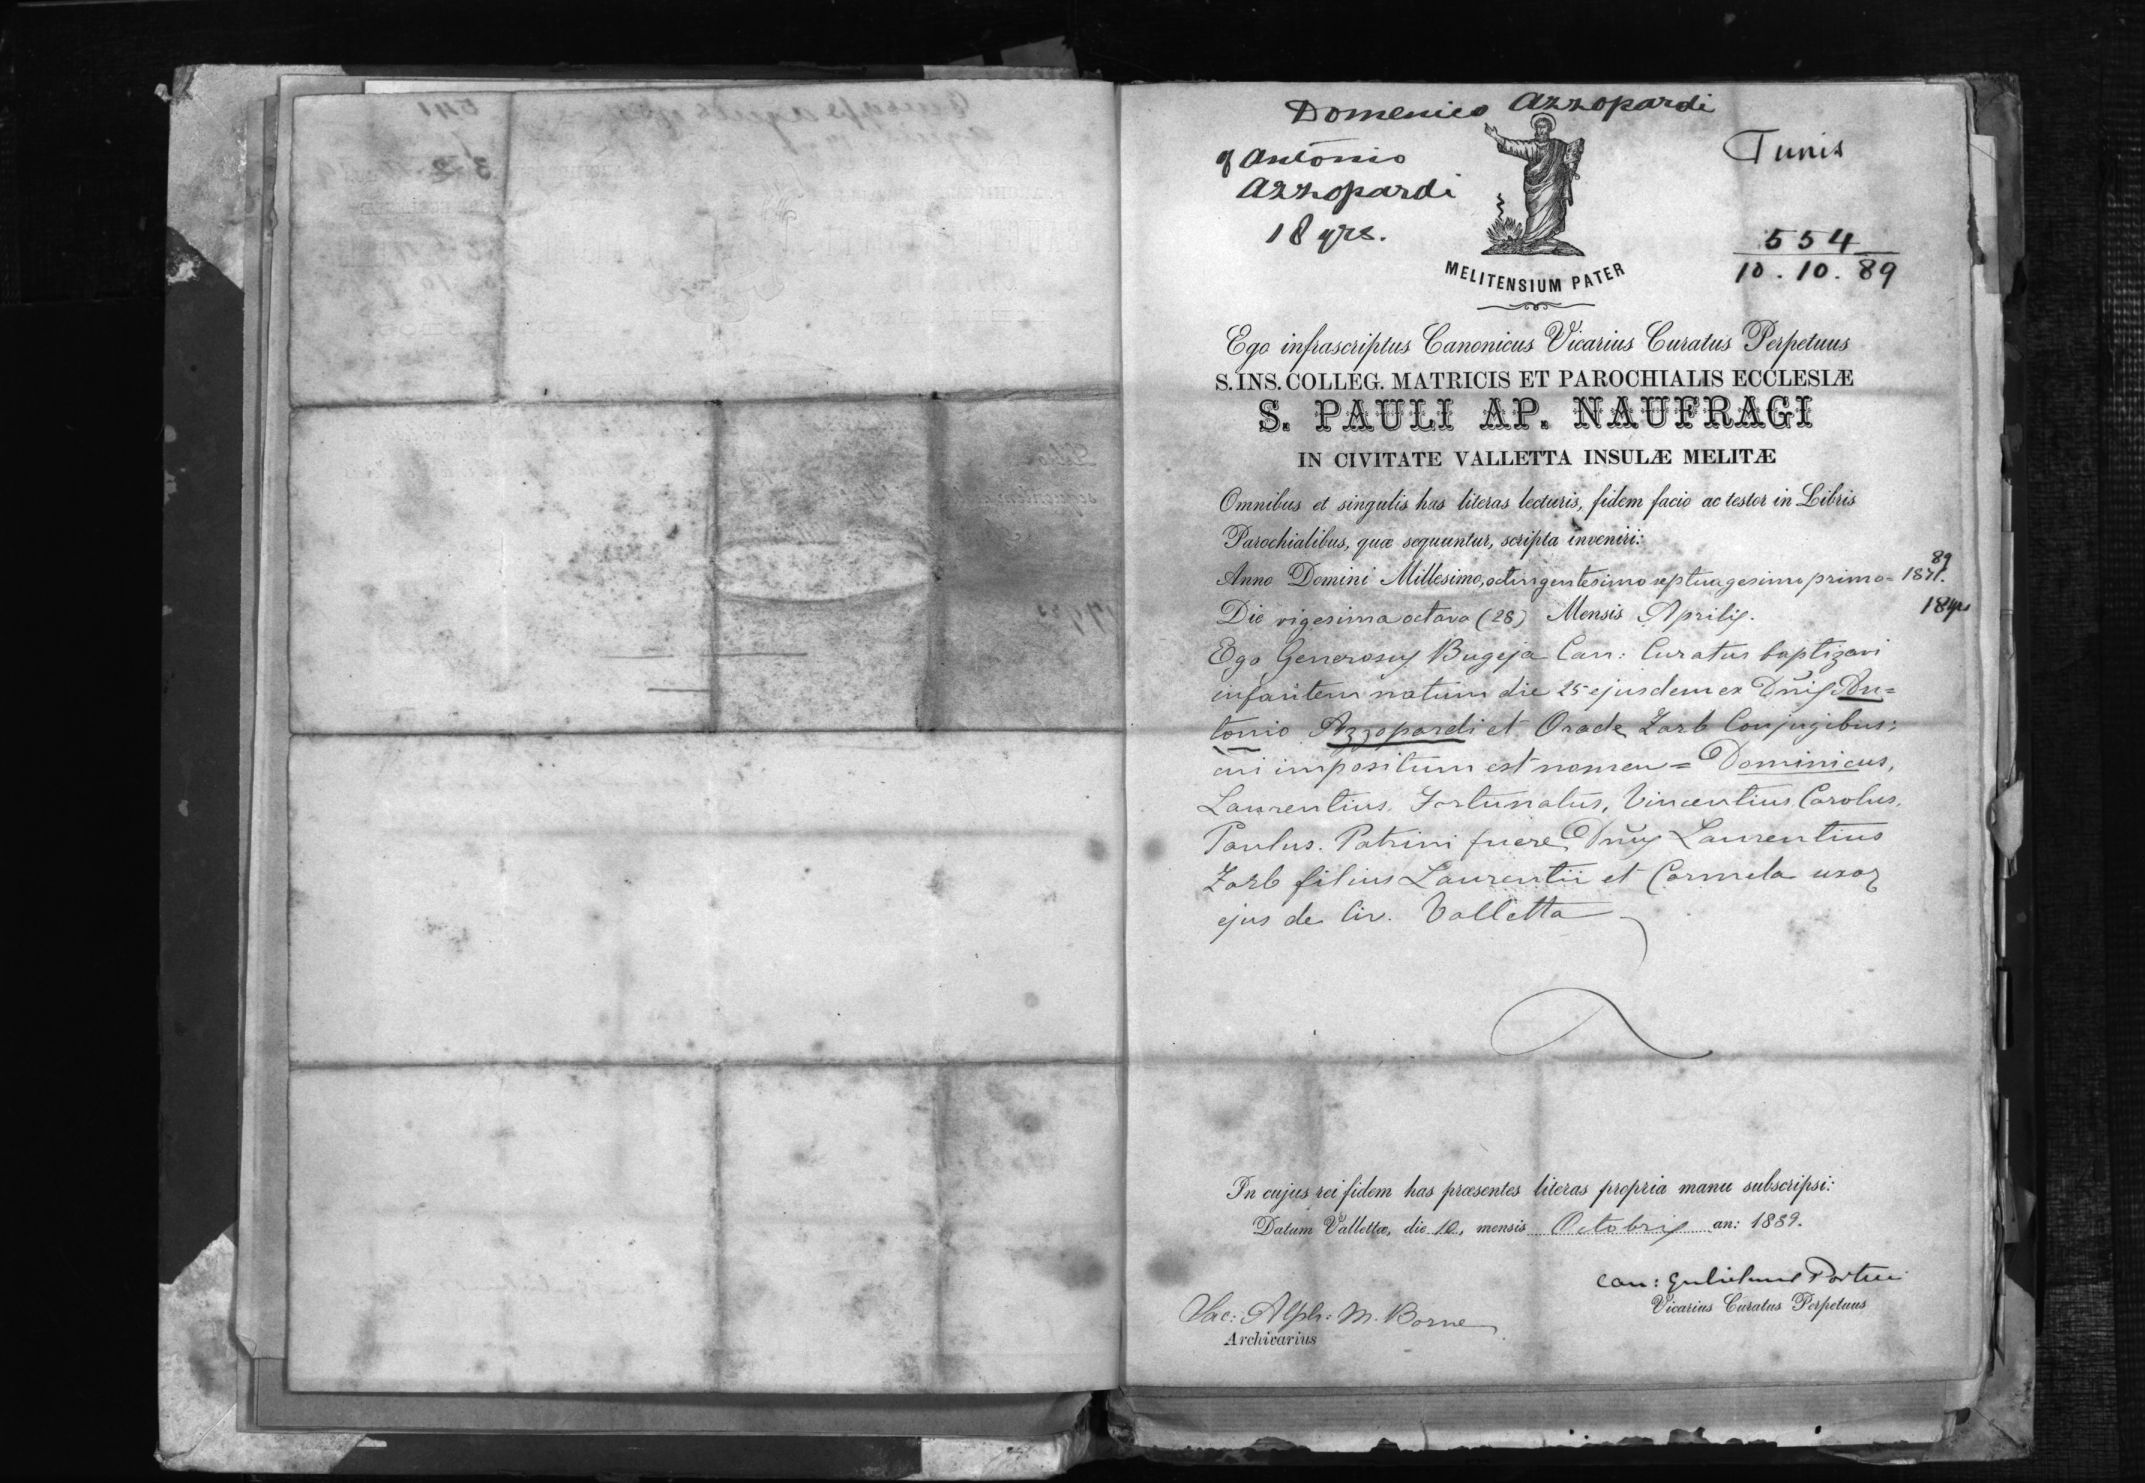 Domenico Azzopardi
of Antonio
Azzopardi
18 yrs.
Tunis
554
10. 10. 89
MELITENSIUM PATER
Ego infrascriptus Canonicus Vicarius Curatus Perpetuus
S. INS. COLLEG. MATRICIS ET PAROCHIALIS ECCLESIÆ
S. PAULI AP. NAUFRAGI
IN CIVITATE VALLETTA INSULÆ MELITÆ
Omnibus et singulis has literas lecturis, fidem facio ac testor in Libris
Parochialibus, quæ sequuntur, scripta inveniri:
89
Anno Domini Millesimo, octingentesimo septuagesimo primo = 1871.
Die vigesima octava (28) Mensis Aprilis.
18 yrs
Ego Generosus Bugeja Can: Curatus baptizavi
infantem natum die 25 ejusdem ex Dnis An=
tonio Azzopardi et Orade Zarb Conjugibus;
cui impositum est nomen = Dominicus,
Laurentius, Fortunatus, Vincentius, Carolus,
Paulus. Patrini fuere Dnus Laurentius
Zarb filius Laurentii et Carmela uxor
ejus de Civ. Valletta
In cujus rei fidem has præsentes literas propria manu subscripsi:
Datum Vallettæ, die 10, mensis Octobris an: 1889.
Can: Gulielmus
Vicarius Curatus Perpetuus
Sac: Alph: M. Borne
Archivarius